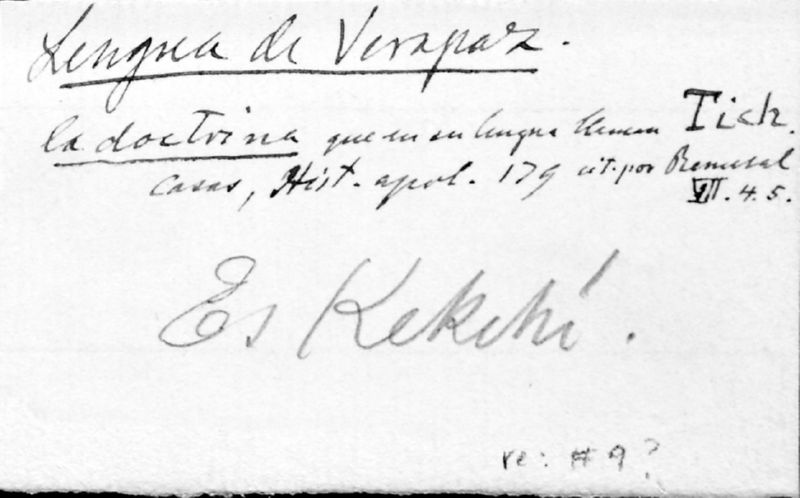 Lengua de Verapaz.
la doctrina que en su lengua llaman Tich.
Casas, Hist. apol. 179 cit. por Remesal
VII. 4. 5.
Es Kekchí.
re: #9?